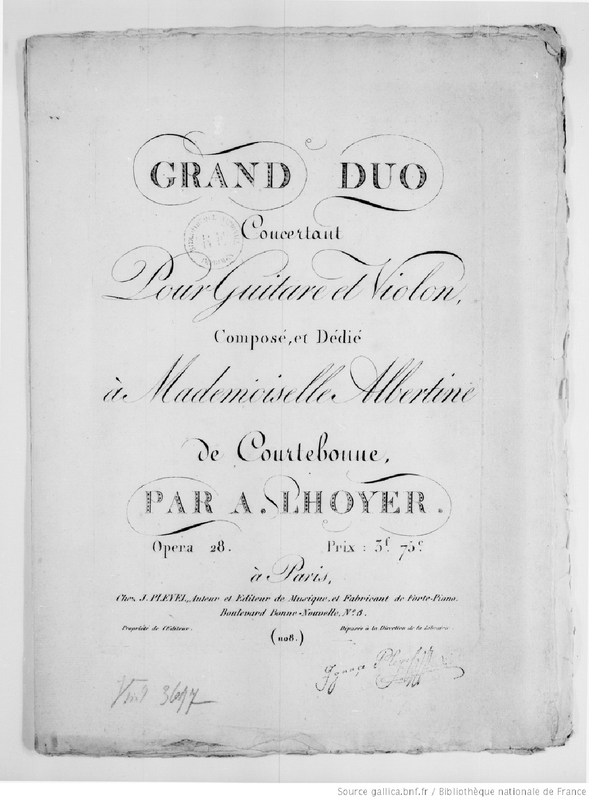 GRAND DUO
Concertant
Pour Guitare et Violon,
Composé, et Dédié
à Mademoiselle Albertine
de Courtebonne,
PAR A. LHOYER.
Opera 28. Prix : 3f. 75c.
à Paris,
Chez J. PLEYEL, Auteur et Editeur de Musique, et Fabricant de Forte-Piano.
Boulevard Bonne-Nouvelle, No. 8.
Propriété de l'Editeur. Déposée à la Direction de la Librairie.
(1108.)
Source gallica.bnf.fr / Bibliothèque nationale de France